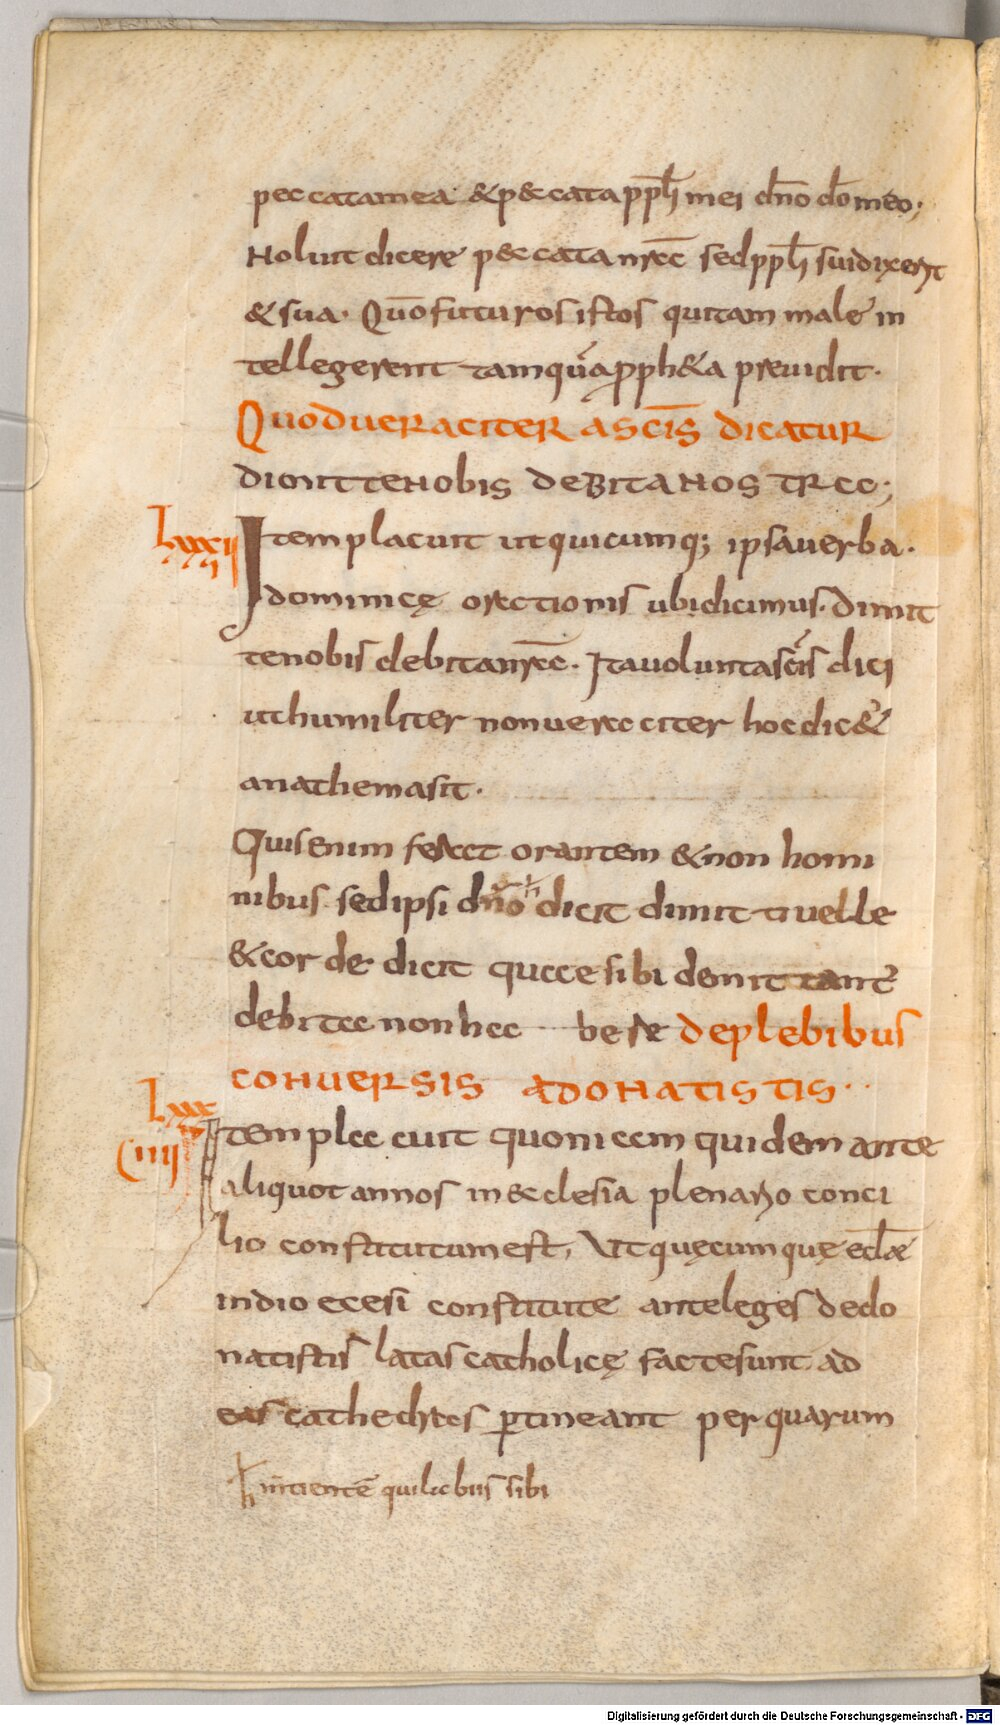 peccatamea· &p&cata pph̄ mei dn̄o dō meo;
Noluit dicere p&cata nr̄a sed pph̄ sui dixerit
& sua· Quō futuros istos qui tam male in
tellegerent tamquā proph&a preuidit·
Quod ueraciter a sc̄is dicatur
dimitte nobis debita nostra;
Lxxxii
Item placuit ut quicumq; ipsa uerba·
dominicę orationis ubi dicimus· dimit
te nobis debita nr̄a· Ita uolunt a sc̄is dici
ut humiliter non ueraciter hoc dic&
anathema sit·
Quis enim ferat orantem & non homi
nibus sed ipsi dn̄o dicit dimitti uelle
& corde dicit quae sibi demittant̄
debita non habere de plebibus
conuersis a donatistis··
Lxxx
Ciiii
Item placuit quoniam quidem ante
aliquot annos in ecclesia plenario conci
lio constitutum est, Ut quęcumquę eclae
in dioecesi constitute ante leges de do
natistis latas catholicę facte sunt· ad
eas cathedras ptineant per quarum
intientē qui labiis sibi
Digitalisierung gefördert durch die Deutsche Forschungsgemeinschaft · DFG